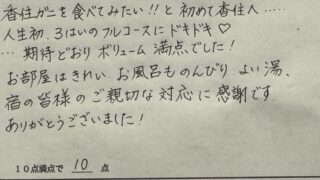 香住ガニを食べてみたい!!と 初めて香住へ……
人生初、3はいのフルコースに ドキドキ♡
… 期待どおり ボリューム 満点でした!
お部屋はきれい お風呂ものんびり よい湯、
宿の皆様の ご親切な対応に 感謝です
ありがとうございました!
10点満点で 10 点